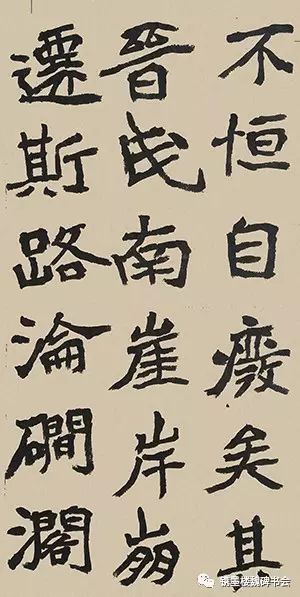 不恒自廢矣其
晉氏南崖岸崩
遷斯路淪磵閣
墨楼魏碑书会